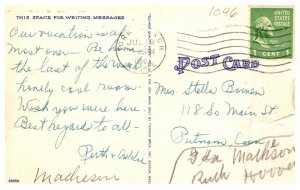 THIS SPACE FOR WRITING MESSAGES
1096
UNITED STATES
POSTAGE
1 CENT 1
POST CARD
Our vacation is
most over. Be home
the last of the week.
lovely cool room
Wish you were here
Best regards to all-
Ruth + Addie
Matheson
Mrs Stella Bowen
118 So. Main St
Putnam Conn
Ida Matheson
Ruth Hoover